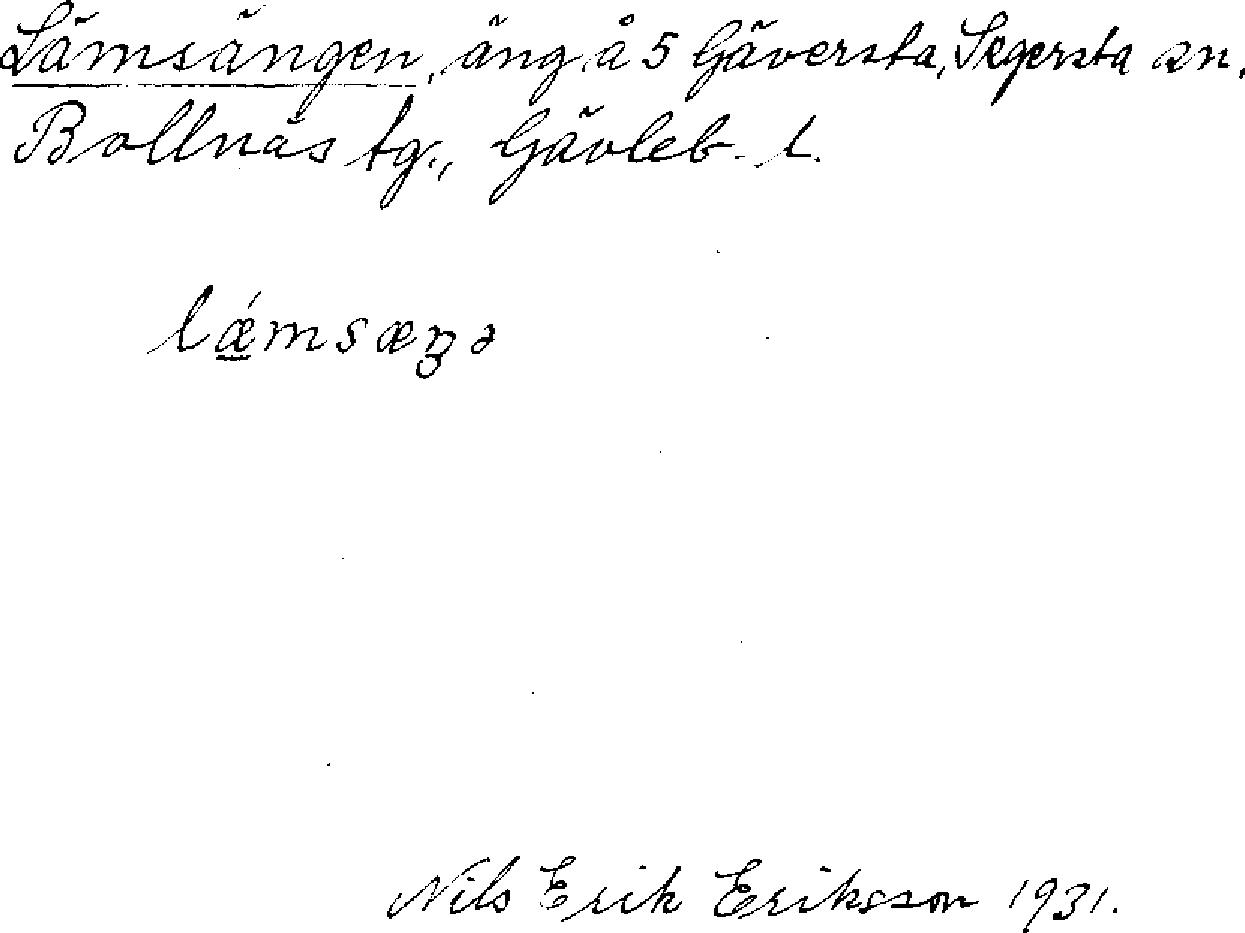 Lämsängen, äng å 5 Gäversta, Segersta sn.
Bollnäs tg., Gävleb. l.
lǽmsæŋə
Nils Erik Eriksson 1931.